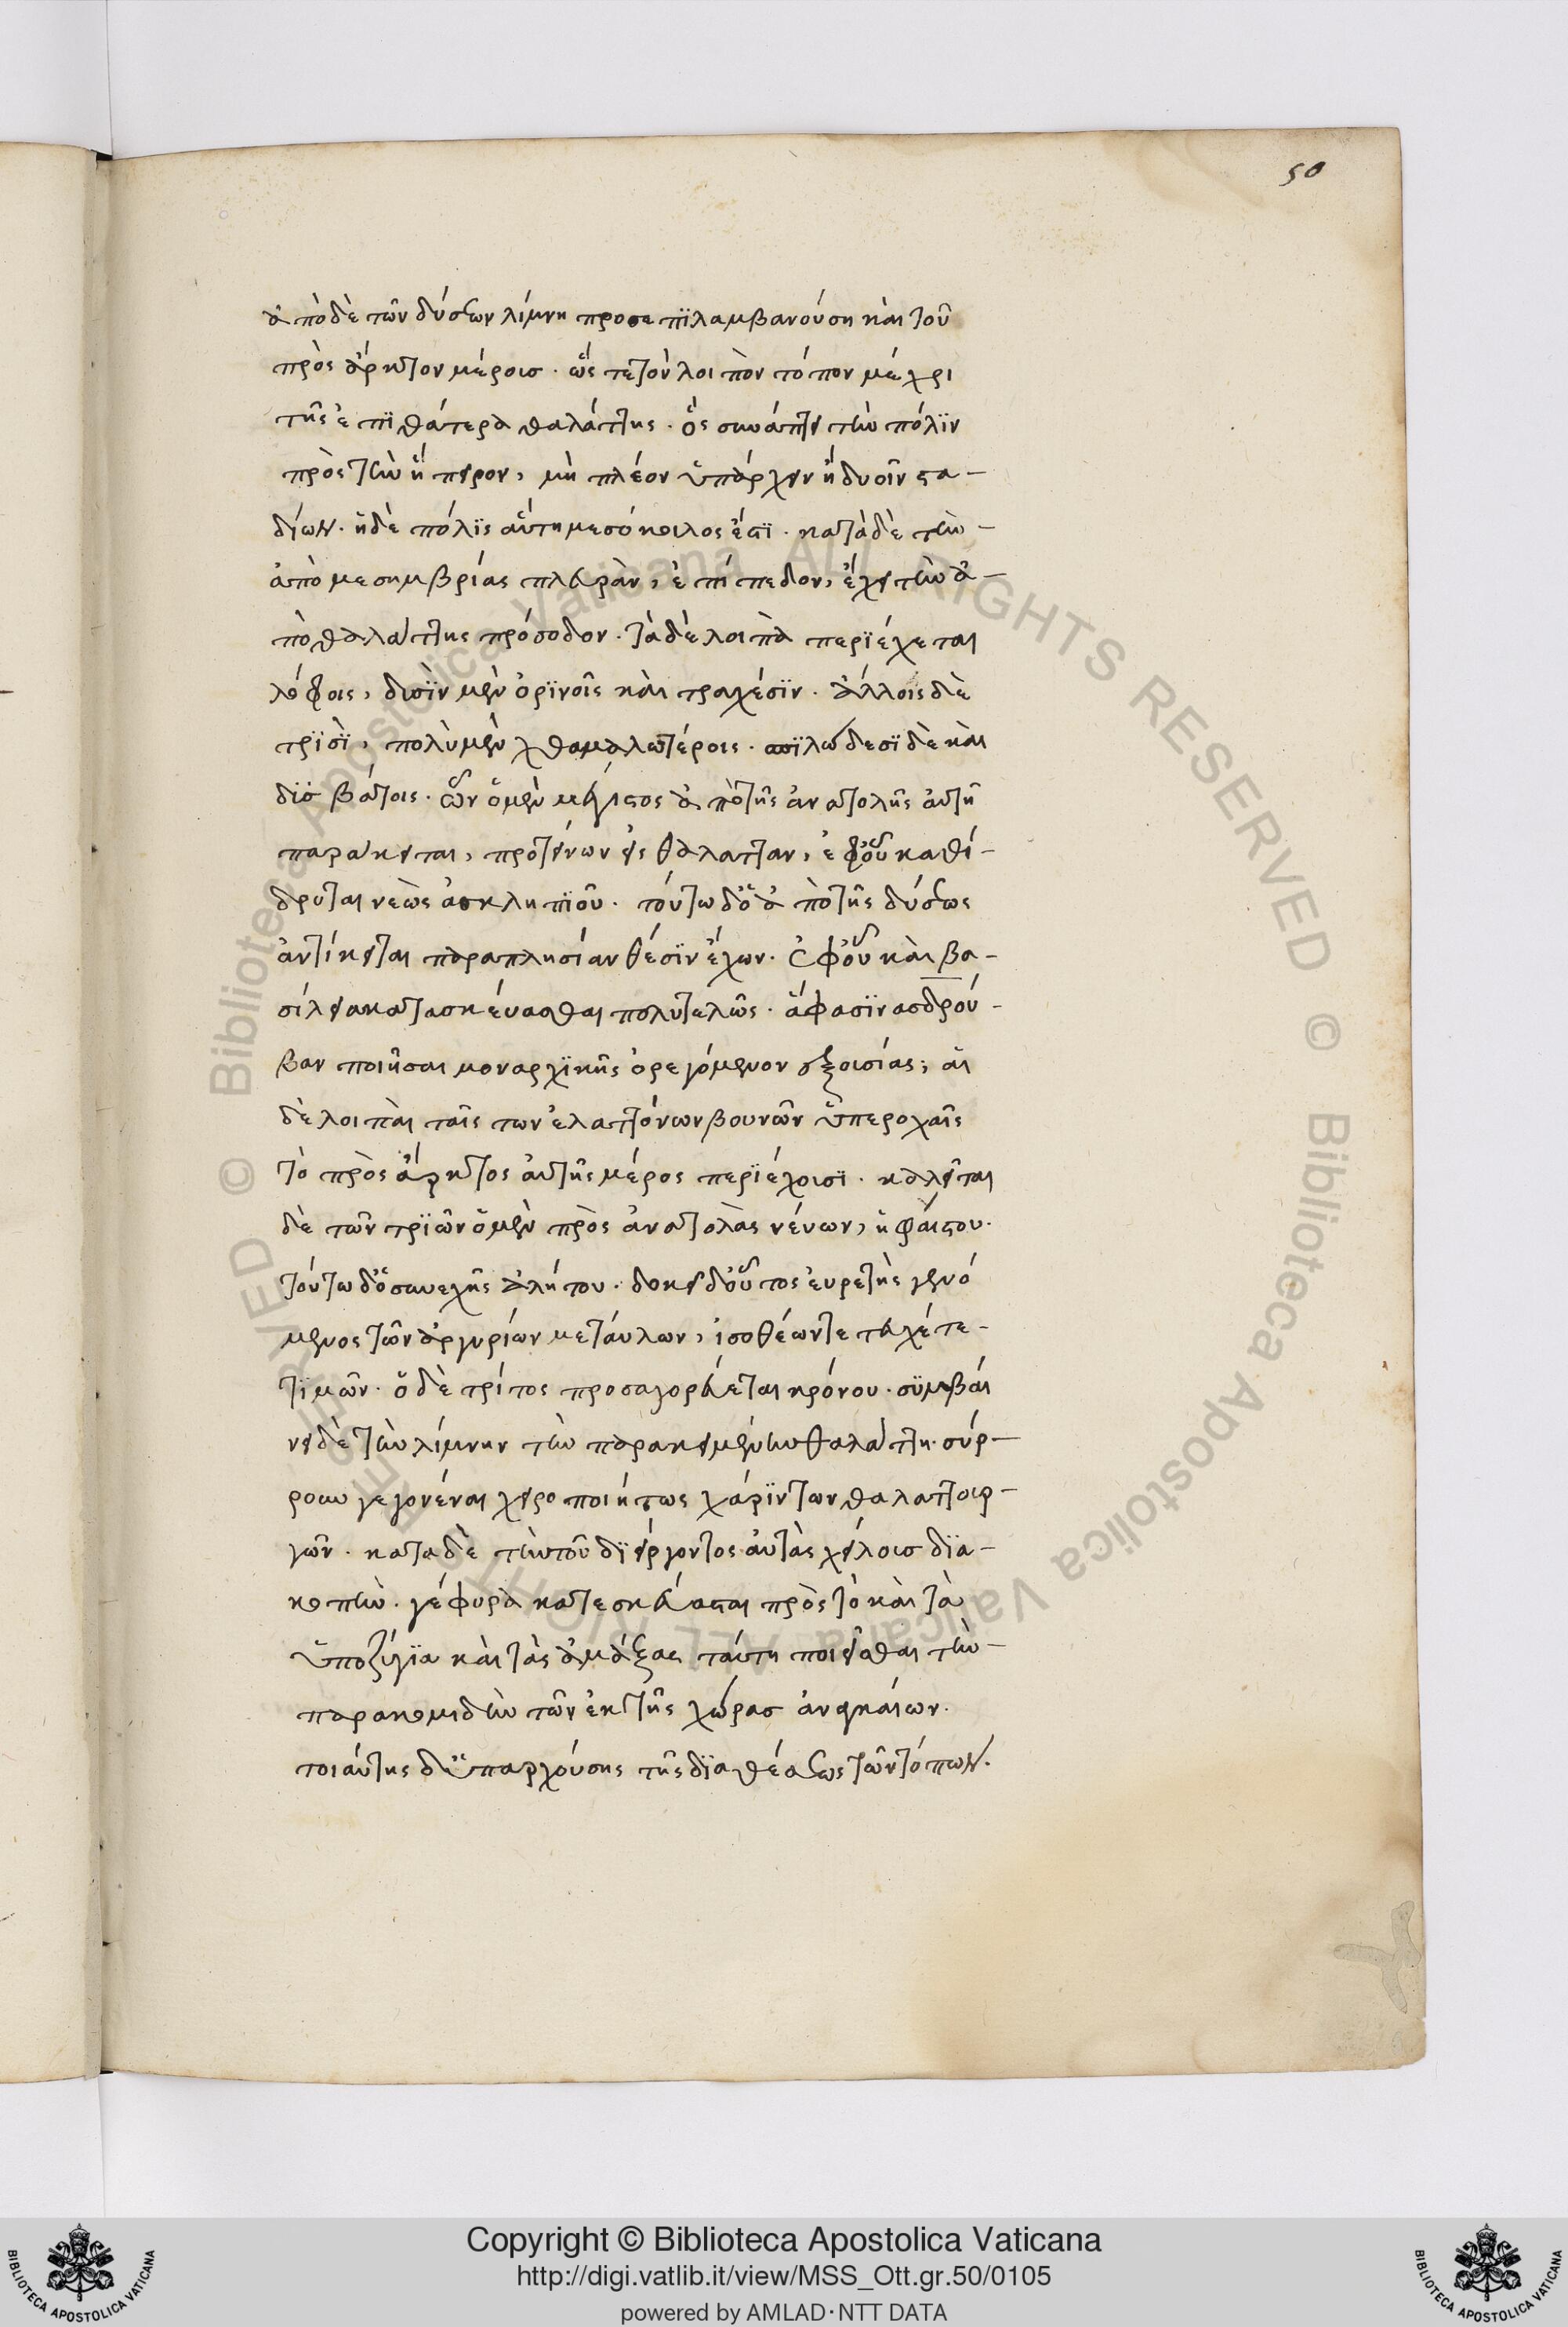 50
ἀπὸ δὲ τῶν δύσεων λίμνη προσεπϊλαμβανούση καὶ τοῦ
πρὸς ἄρκτον μέρους· ὥστε τὸν λοιπὸν τόπον μέχρι
τῆς ἐπϊ θάτερα θαλάττης· ὃς συνάπτει τὴν πόλϊν
πρὸς τὴν ἤπειρον, μὴ πλέον ὑπάρχειν ἢ δυοῖν στα-
δίων. ἡ δὲ πόλϊς αὕτη μεσόκοιλος ἐστϊ· κατὰ δὲ τὴν
ἀπὸ μεσημβρίας πλευρὰν, ἐπίπεδον, ἔχει τὴν ἀ-
πὸ θαλάττης πρόσοδον. τὰ δὲ λοιπὰ περϊέχεται
λόφοις, δυσϊν μὲν ὀρϊνοῖς καὶ τραχέσϊν. ἄλλοις δὲ
τρϊσϊ, πολὺ μὲν χθαμαλωτέροις. σπϊλώδεσϊ δὲ καὶ
δϋσβάτοις. ὧν ὁ μὲν μέγιστος ἀπὸ τῆς ἀνατολῆς αὐτῆ
παράκειται, προτείνων εἰς θάλατταν, ἐφ' οὗ καθί-
δρυται νεὼς ἀσκληπϊοῦ. τούτω δ' ὁ ἀπὸ τῆς δύσεως
ἀντίκειται παραπλησίαν θέσϊν ἔχων. ἐφ' οὗ καὶ βα-
σίλεια κατασκέυασθαι πολυτελῶς. ἅ φασϊν ασδρού-
βαν ποιῆσαι μοναρχϊκῆς ὀρεγόμενον ἐξουσίας; αἱ
δὲ λοιπαὶ ταῖς των ἐλαττόνων βουνῶν ὑπεροχαῖς
τὸ πρὸς ἄρκτος αὐτῆς μέρος περϊέχουσϊ. καλεῖται
δὲ τῶν τρϊῶν ὁ μὲν πρὸς ἀνατολὰς νέυων, ἡφαίστου.
τούτω δ' ὁ συνεχῆς ἀλήτου. δοκεῖ δ' οὗτος ἑυρετὴς γενό
μενος τῶν ἀργυρίων μετάυλων, ἰσοθέων τετευχέτε-
τϊμῶν. ὁ δὲ τρίτος προσαγορεύεται κρόνου. συμβάι
νει δὲ τὴν λίμνην τὴν παρακειμένην θαλάττη. σύρ-
ρουν γεγονέναι χειροποιήτως χάρϊν τῶν θαλαττουρ-
γῶν. κατα δὲ τὴν τοῦ δϊείργοντος αὐτὰς χείλους δϊα-
κοπὴν. γέφυρα κατεσκεύασται πρὸς τὸ καὶ τὰ
ὑποζύγϊα καὶ τὰς ἁμάξας ταύτη ποιεῖσθαι τὴν
παρακομιδὴν τῶν ἐκ τῆς χώρας ἀναγκάιων.
τοιαύτης δ' ὑπαρχούσης τῆς δϊαθέσεως τῶν τόπων.
Copyright © Biblioteca Apostolica Vaticana
http://digi.vatlib.it/view/MSS_Ott.gr.50/0105
powered by AMLAD·NTT DATA
BIBLIOTECA APOSTOLICA VATICANA
BIBLIOTECA APOSTOLICA VATICANA
© Biblioteca Apostolica Vaticana ALL RIGHTS RESERVED © Biblioteca Apostolica Vaticana ALL RIGHTS RESERVED